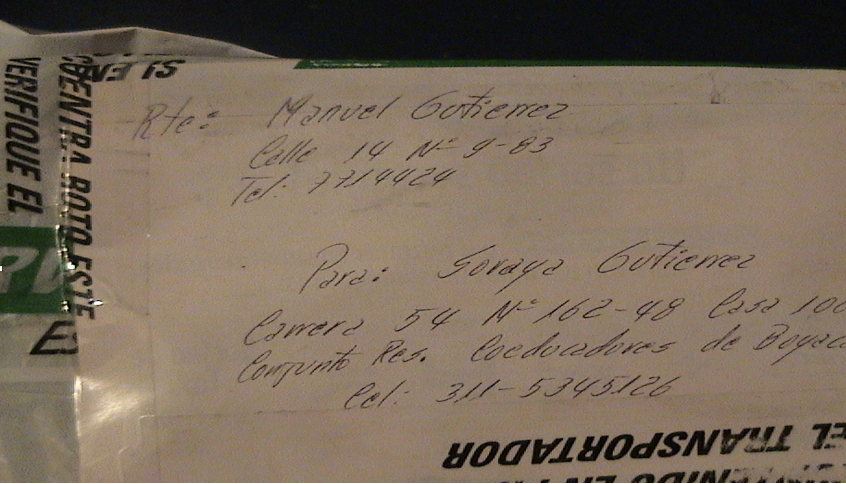 SI EN
CUENTRA ROTO ESTE
VERIFIQUE EL
Rte: Manuel Gutierrez
Calle 14 Nº 9-83
Tel: 7714424
Para: Soraya Gutierrez
Carrera 54 Nº 162-48 Casa 100
Conjunto Res. Coeducadores de Boyac
Cel: 311-5345126
EL TRANSPORTADOR